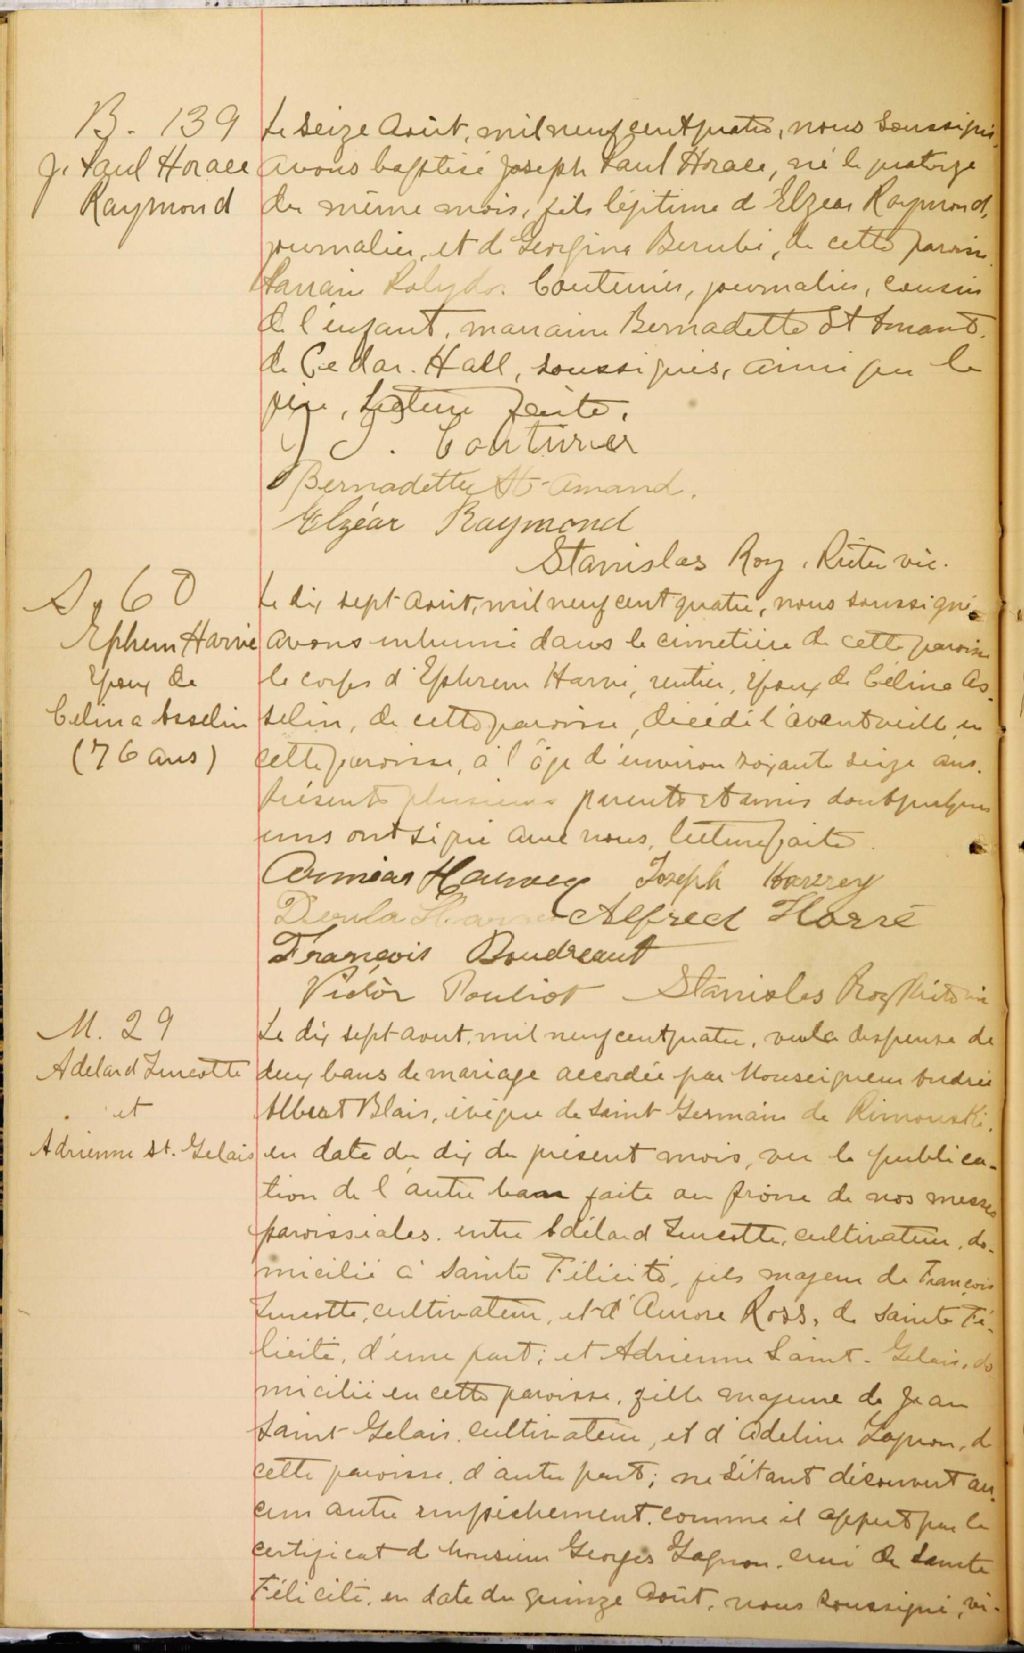 B. 139
J. Paul Horace
Raymond
Le seize Août, mil neuf cent quatre, nous soussigné,
avons baptisé Joseph Paul Horace, né le quatorze
du même mois, fils légitime d'Elzéar Raymond,
journalier, et de Georgina Berubé, de cette paroisse.
Parrain Polydor Couturier, journalier, cousin
de l'enfant, marraine Bernadette St Amant,
de Cedar-Hall, soussignés, ainsi que le
père, lecture faite.
J. Couturier
Bernadette St-Amand.
Elzéar Raymond
Stanislas Roy, Ptre vic.
S. 60
Ephrem Harvé
époux de
Célina Asselin
(76 ans)
Le dix sept Août, mil neuf cent quatre, nous soussigné,
avons inhumé dans le cimetière de cette paroisse
le corps d'Ephrem Harvé, rentier, époux de Célina As-
selin, de cette paroisse, décédé l'avant veille, en
cette paroisse, à l'âge d'environ soixante seize ans.
Présents plusieurs parents et amis dont quelques
uns ont signé avec nous, lecture faite.
Harvey Joseph Harvey
Alfred Harré
François Boudreault
Victor Pouliot Stanislas Roy Ptre vic
M. 29
Adelard Turcotte
et
Adrienne St. Gelais
Le dix sept août, mil neuf cent quatre, vu la dispense de
deux bans de mariage accordée par Monseigneur André
Albert Blais, évêque de Saint Germain de Rimouski,
en date du dix du présent mois, vu la publica-
tion de l'autre ban faite au prône de nos messes
paroissiales, entre Adélard Turcotte, cultivateur, do-
micilié à Sainte Félicité, fils majeur de François
Turcotte, cultivateur, et d'Aurore Ross, de Sainte Fé-
licité, d'une part; et Adrienne Saint-Gelais, do
micilié en cette paroisse, fille majeure de Jean
Saint-Gelais, cultivateur, et d'Adeline Gagnon, de
cette paroisse, d'autre part; ne s'étant découvert au-
cun autre empêchement, comme il appert par le
certificat de Monsieur Georges Gagnon, curé de Sainte
Félicité, en date du quinze Août, nous soussigné, vi-